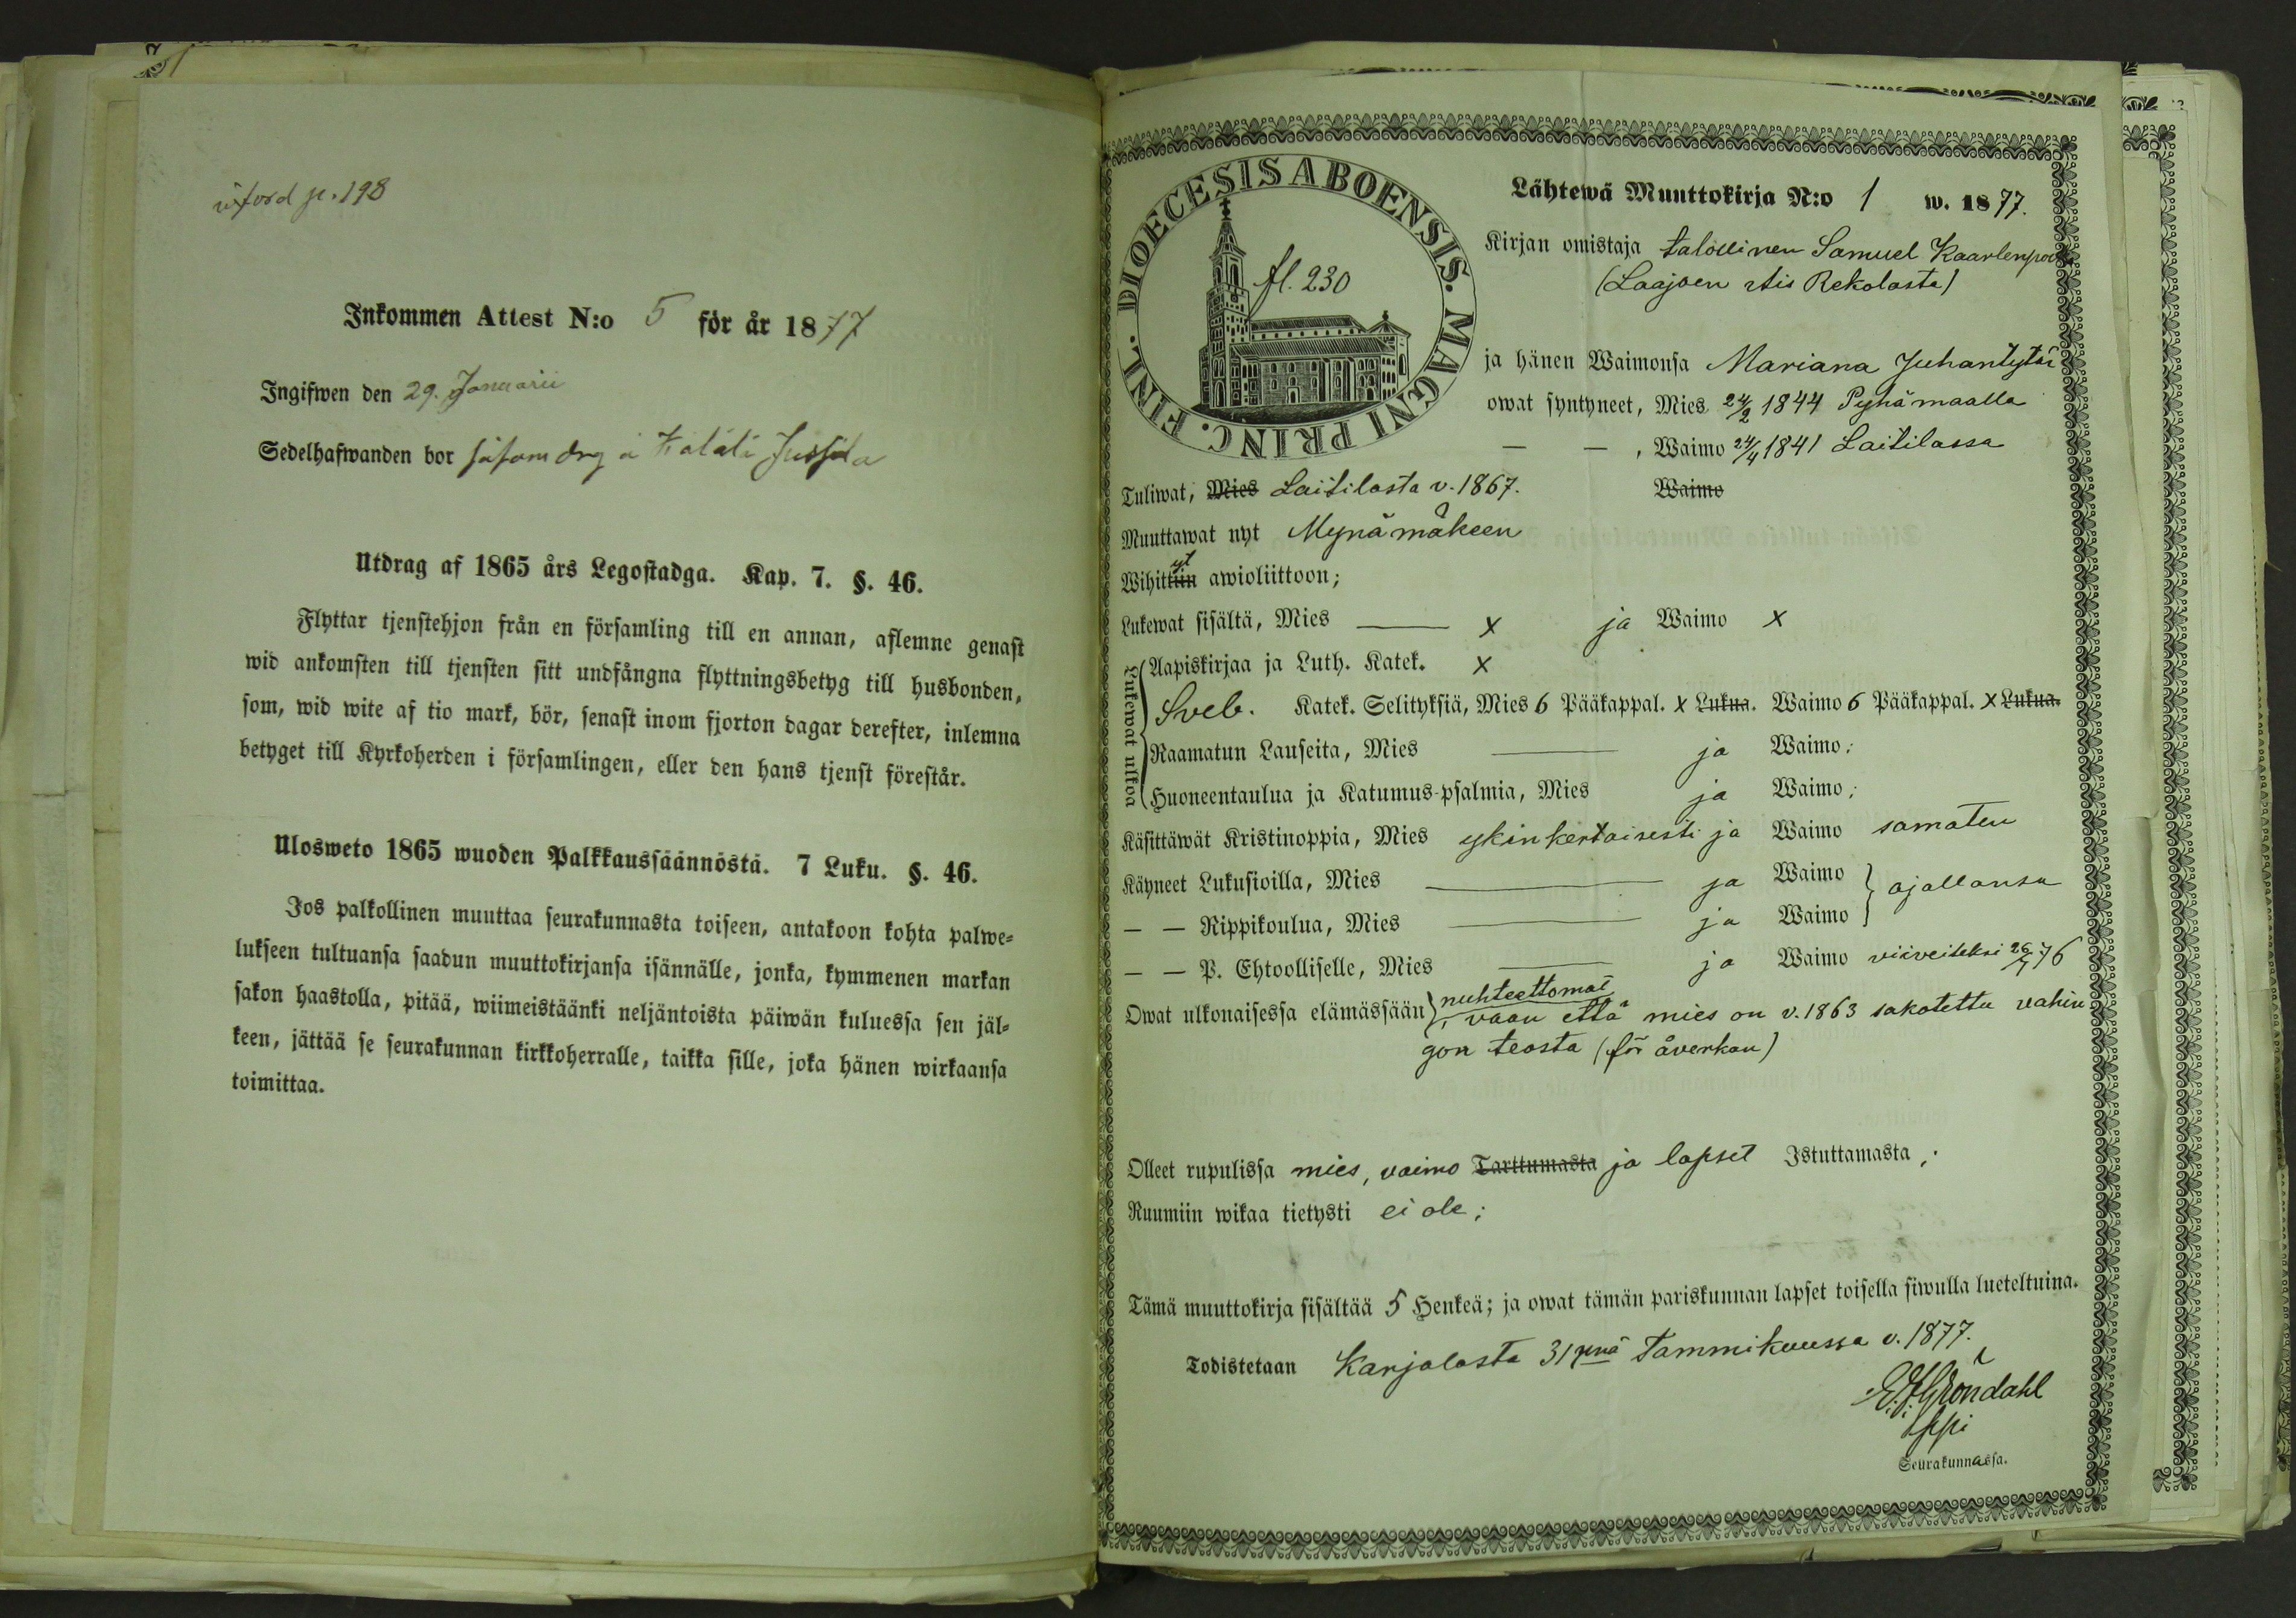 införd p. 198
Inkommen Attest N:o 5 för år 1877
Ingifwen den 29. Januarii
Sedelhafwanden bor såsom drg å Jussila
Utdrag af 1865 års Legostadga. Kap. 7. §. 46.
Flyttar tjenstehjon från en församling till en annan, aflemne genast
wid ankomsten till tjensten sitt undfångna flyttningsbetyg till husbonden,
som, wid wite af tio mark, bör, senast inom fjorton dagar derefter, inlemna
betyget till Kyrkoherden i församlingen, eller den hans tjenst förestår.
Ulosweto 1865 wuoden Palkkaussäännöstä. 7 Luku. §. 46.
Jos palkollinen muuttaa seurakunnasta toiseen, antakoon kohta palwe=
lukseen tultuansa saadun muuttokirjansa isännälle, jonka, kymmenen markan
sakon haastolla, pitää, wiimeistäänki neljäntoista päiwän kuluessa sen jäl=
keen, jättää se seurakunnan kirkkoherralle, taikka sille, joka hänen wirkaansa
toimittaa.
DIOECESIS ABOENSIS. MAGNI PRINC. FINL.
fl. 230
Lähtewä Muuttokirja N:o 1 w. 1877.
Kirjan omistaja talollinen Samuel Kaarlenpoika
(Laajoen Rekolasta)
ja hänen Waimonsa Mariana Juhantytär
owat syntyneet, Mies 24/2 1844 Pyhämaalla
— — , Waimo 24/4 1841 Laitilassa
Tuliwat, Mies Laitilasta v. 1867. Waimo
Muuttawat nyt Mynämäkeen
Wihittiin yt awioliittoon;
Lukewat sisältä, Mies — x ja Waimo x
Lukewat ulkoa
Aapiskirjaa ja Luth. Katek. x
Sveb. Katek. Selityksiä, Mies 6 Pääkappal. x Lukua. Waimo 6 Pääkappal. x Lukua.
Raamatun Lauseita, Mies — ja Waimo;
Huoneentaulua ja Katumus-psalmia, Mies ja Waimo;
Käsittäwät Kristinoppia, Mies ykinkertaisesti ja Waimo samaten
Käyneet Lukusioilla, Mies — ja Waimo } ajallansa
— — Rippikoulua, Mies — ja Waimo
— — P. Ehtoolliselle, Mies — ja Waimo viiveiteksi 26/7 76
Owat ulkonaisessa elämässään nuhteettomat
, vaan että mies on v. 1863 sakotettu vahin
gon teosta (för åverkan)
Olleet rupulissa mies, vaimo Tarttumasta ja lapset Istuttamasta;
Ruumiin wikaa tietysti ei ole;
Tämä muuttokirja sisältää 5 Henkeä; ja owat tämän pariskunnan lapset toisella siwulla lueteltuina.
Todistetaan Karjalasta 31 pnä Tammikuussa v. 1877.
Gröndahl
Seurakunnassa.